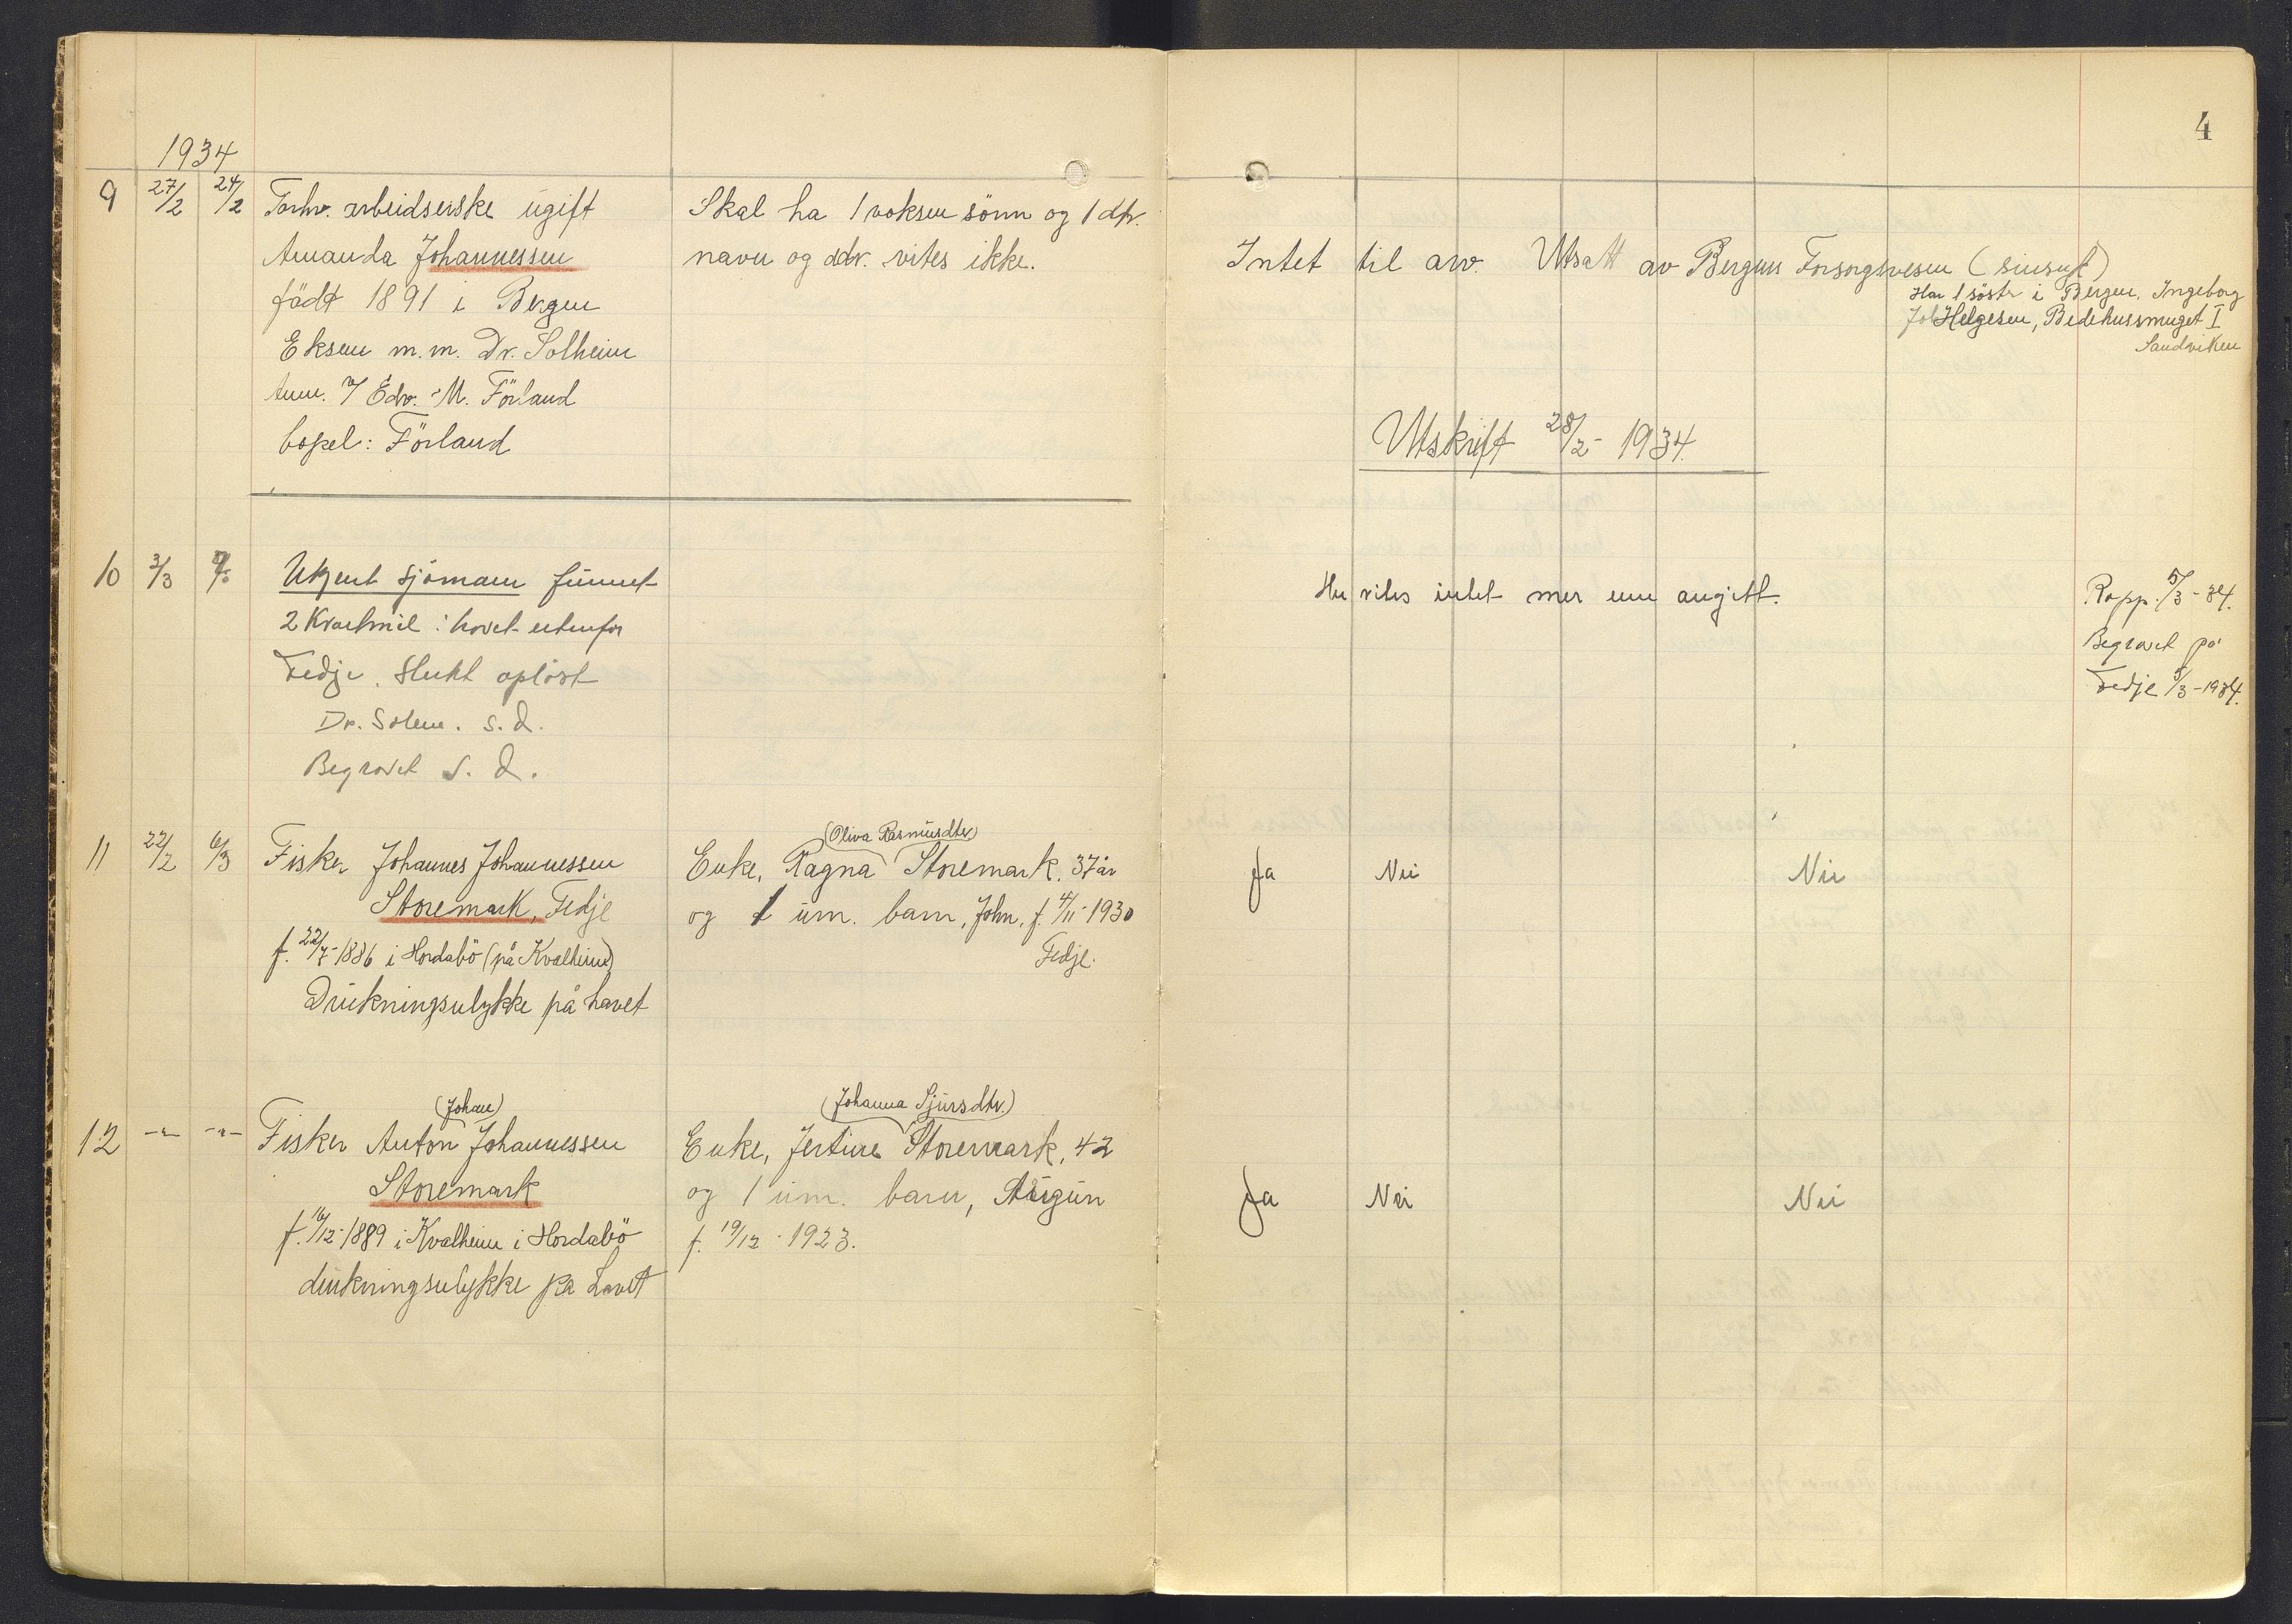 4
1934
9 27/2 24/2 Forhv. arbeiderske ugift
Amanda Johannessen
födt 1891 i Bergen
Eksem m.m. Dr. Solheim
Anm. v/ Edv. M. Förland
bopel: Förland
Skal ha 1 voksen sönn og 1 dtr.
navn og adr. vites ikke.
Intet til arv. Utsatt av Bergens Forsorgsvesen (sinssyk)
Har 1 söster i Bergen, Ingeborg
Helgesen, Bedehussmuget I
Sandviken
Utskrift 28/2 - 1934.
10 3/3 Ukjent sjömann funnet
2 Kvartmil i havet utenfor
Fedje. Slukt oplöst
Dr. Solem. s.d.
Begravet s. d.
Her vites intet mer enn angitt.
Rapp. 5/3-34.
Begravet på
Fedje 5/3-1934.
11 22/2 6/3 Fisker Johannes Johannessen
Storemark, Fedje
f. 22/7-1886 i Hordabö (på Kvalheim)
Drukningsulykke på havet
(Oliva Rasmusdtr)
Enke, Ragna Storemark, 37 år
og 1 um. barn, John, f. 4/11-1930
Fedje.
Ja Nei Nei
12 -"- -"- (Johan)
Fisker Anton Johannessen
Storemark
f. 16/12-1889 i Kvalheim i Hordabö
drukningsulykke på havet
(Johanna Sjursdtr.)
Enke, Jertine Storemark, 42
og 1 um. barn,
f. 19/12-1923.
Ja Nei Nei